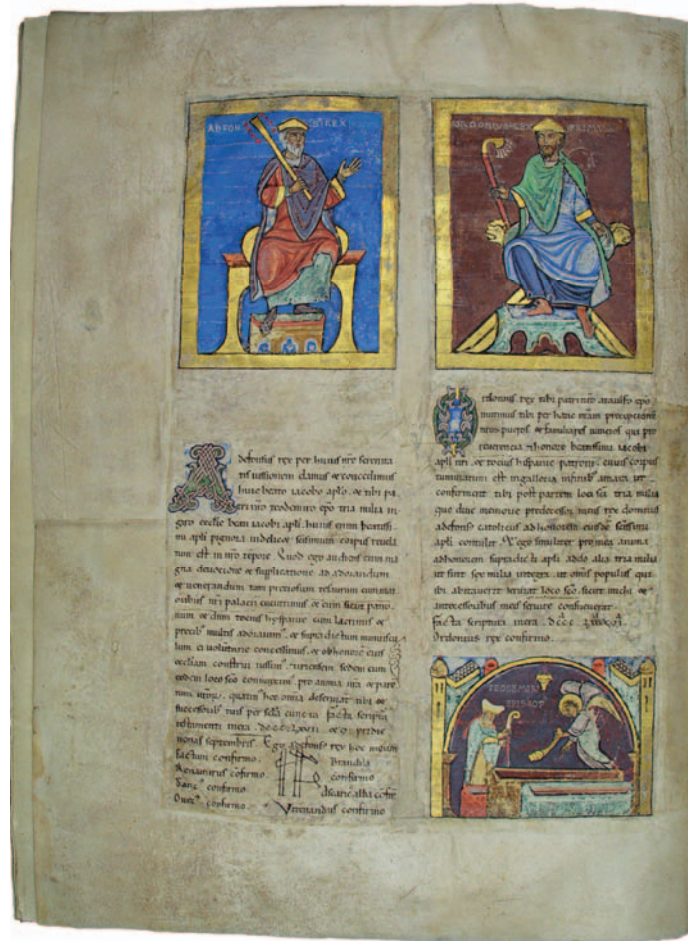 ADEFON
S REX
EPISCOP
defonsus rex per huius nre serenita
tis iussionem damus et concedimus
huic beato iacobo aplo. et tibi pa
tri nro teodemiro epo tria milia in
giro ecclie beati iacobi apli. huius enim beatissi
mi apli pignora uidelicet scissimum corpus reuela
tum est in nro tepore. Quod ego audiens cum ma
gna deuotione et supplicatione ad adorandum
et uenerandum tam preciosum tesaurum cum maio
ribus nri palacii cucurrimus et eum sicut patro
num et dnm tocius hyspanie cum lacrimis et
precib multis adorauimus. et supra dictum munuscu
lum ei uoluntarie concessimus. et ob honore eius
eccliam construi iussim.
eodem loco sco pro anima nra et pare
ntum quatin hec omia deseruiat tibi et
successorib tuis per scla cuncta facta scriptura
testamenti in era
nonas septembris. Ego adefonsus rex hoc meum
factum confirmo.
Brandila
confirmo
Ranemirus cofirmo
Sanc confirmo
Ascarie abba cofir
Suer confirmo
Vitenandus confirmo
rdonius rex tibi patri nro ataulfo epo
mittimus tibi per hanc nram preceptione
nros pueros et familiares nuncios qui pro
reuerencia et honore beatissimi iacobi
apli nri. et tocius hispanie patroni. cuius corpus
tumulatum est in gallecia finib amaea ut
confirment tibi post partem loci sci tria milia
que diue memorie predecessor meus rex domnus
adefons catolicus ad honore eiusde scissimi
apli contulit. Et ego similiter pro mea anima
ad honorem supradicti apli addo alia tria milia
ut sint sex milia integra. ut omis populus qui
ibi abitauerit seruiat loco sco. sicut michi et
antecessoribus meis seruire consueuerat.
facta scriptura in era
Ordonius rex confirmo.